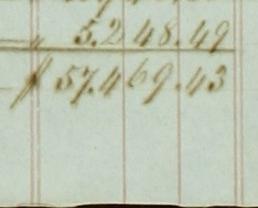 5.248.49
$57.469.43